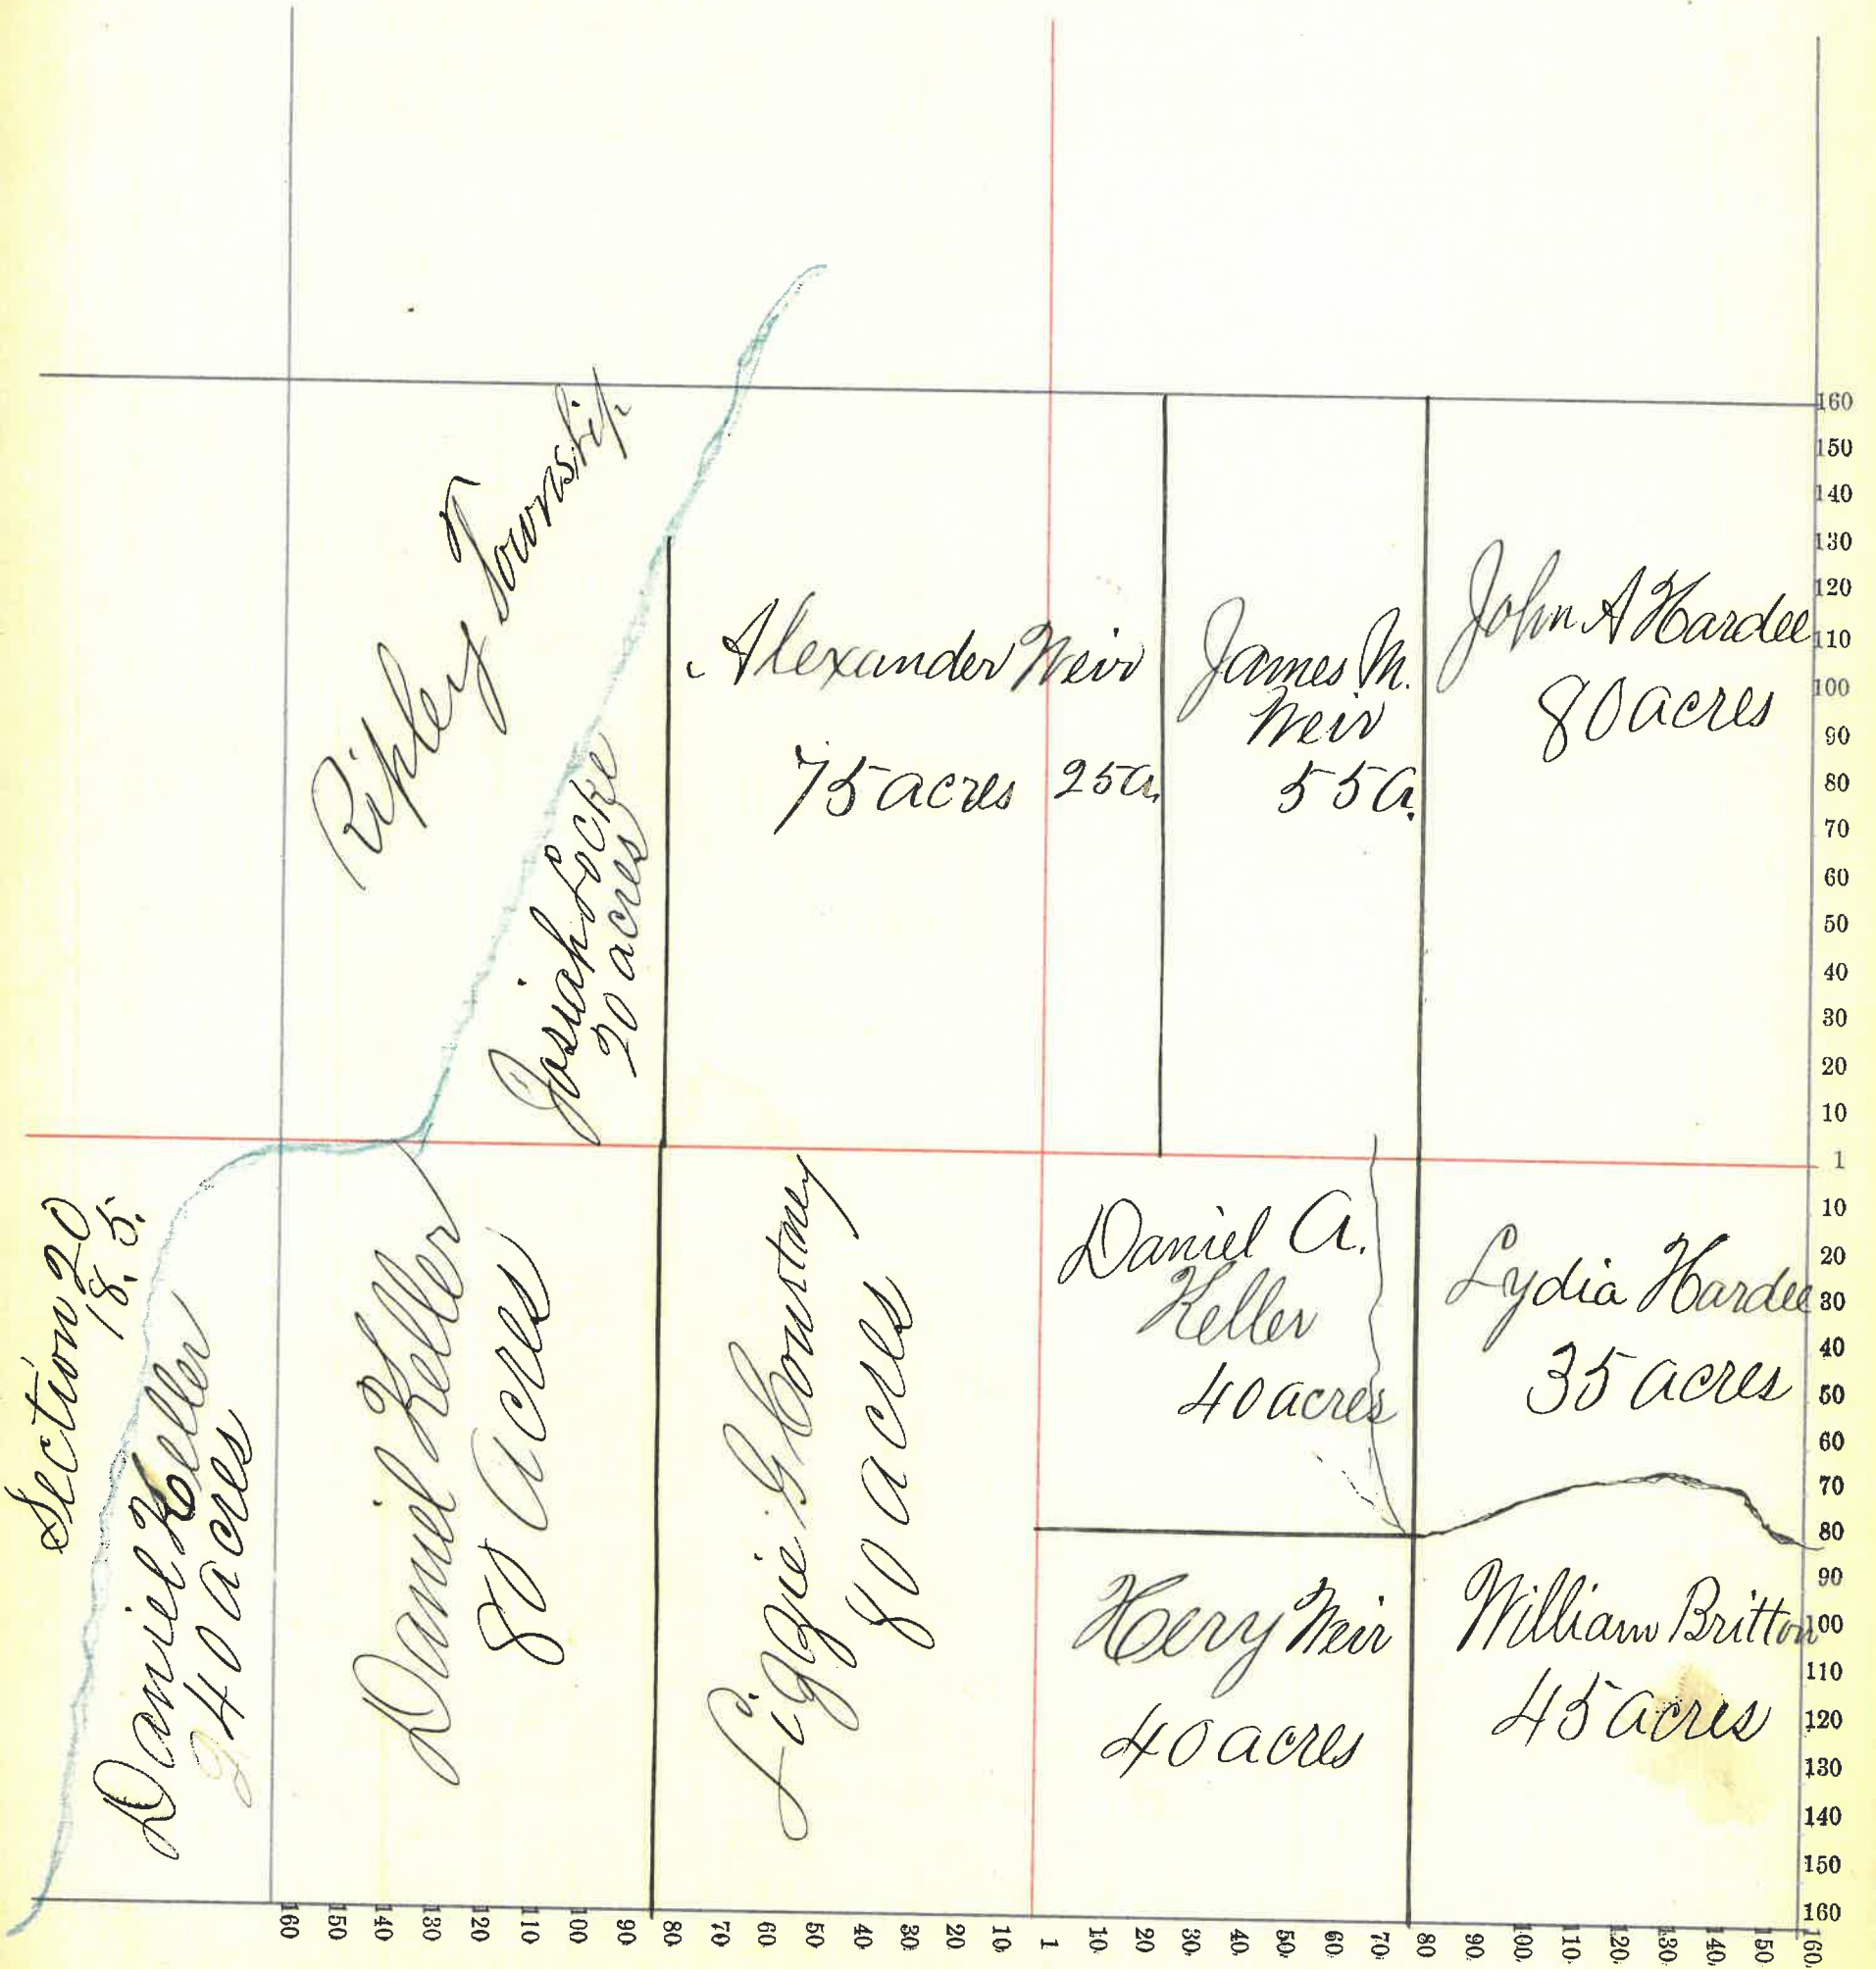 Ripley Township
Josiah Locke
20 acres
Alexander Weir
75 acres 25a.
James M.
Weir
55a.
John A Hardee
80 acres
Section 20
18. 5.
Daniel Keller
40 acres
Daniel Keller
80 acres
Lizzie G Courtney
80 acres
Daniel A.
Keller
40 acres
Lydia Hardee
35 acres
Hery Weir
40 acres
William Britton
45 acres
160
150
140
130
120
110
100
90
80
70
60
50
40
30
20
10
1
10
20
30
40
50
60
70
80
90
100
110
120
130
140
150
160
160 150 140 130 120 110 100 90 80 70 60 50 40 30 20 10 1 10 20 30 40 50 60 70 80 90 100 110 120 130 140 150 160